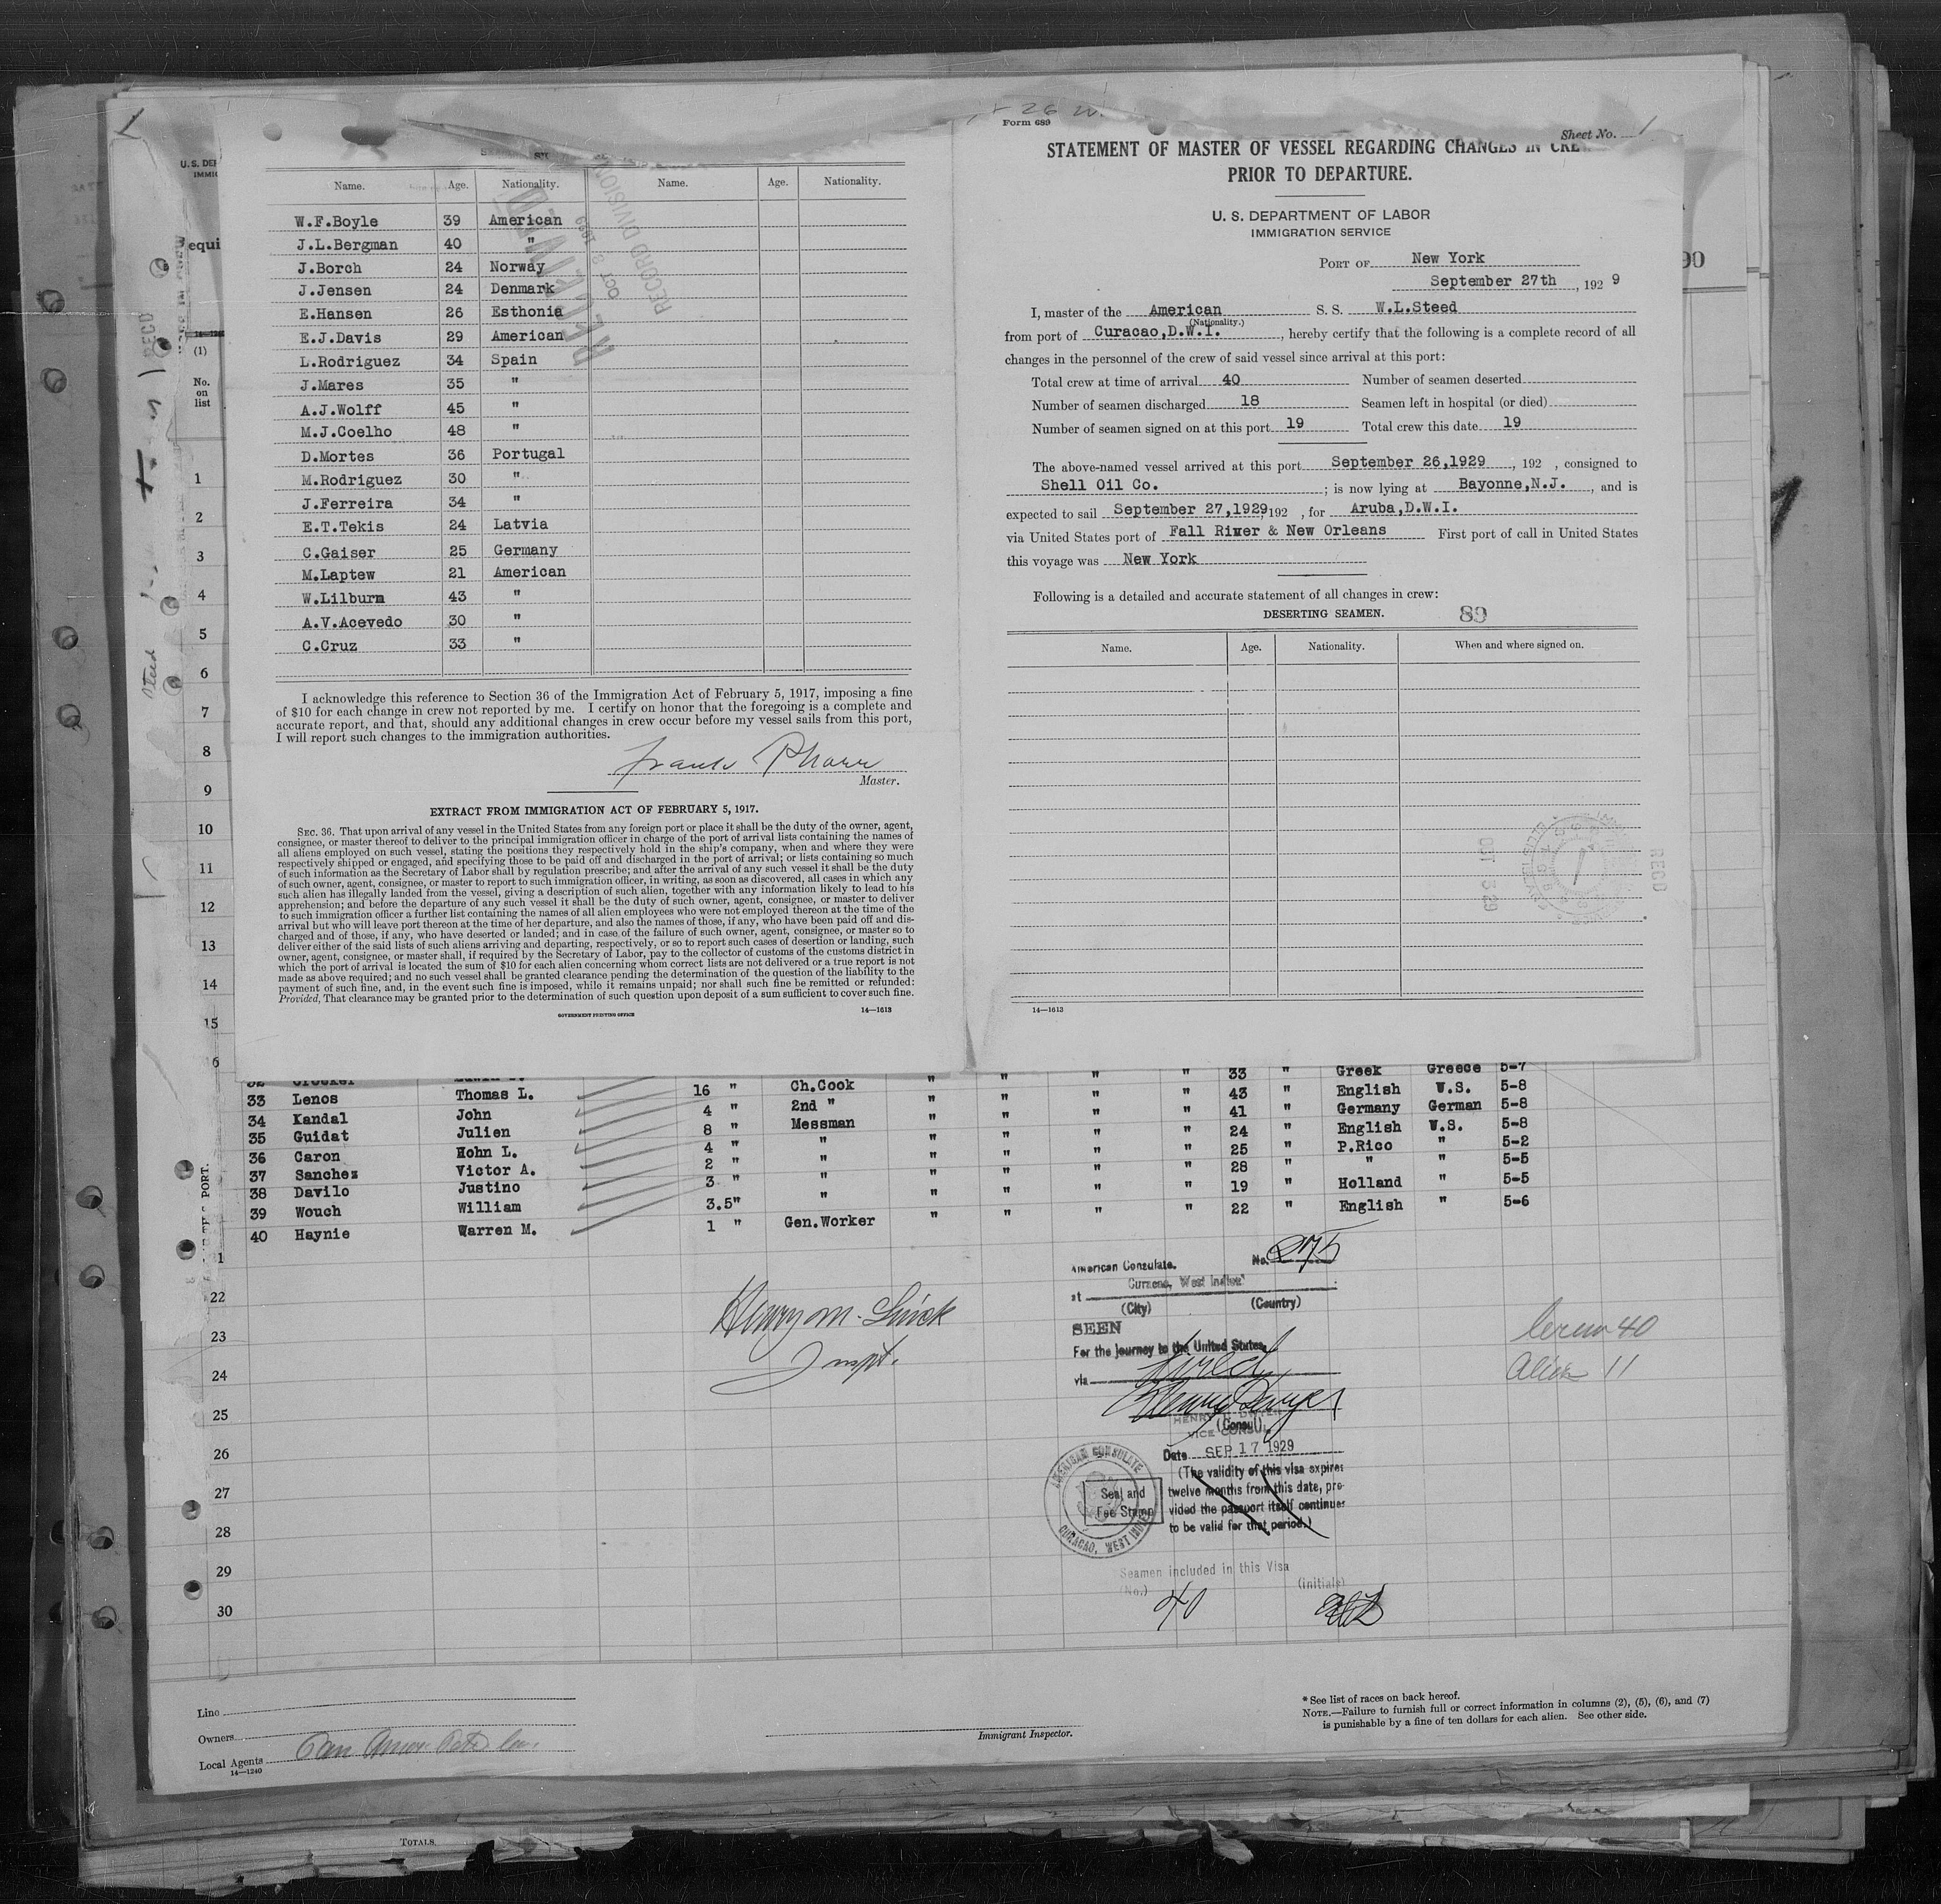 Name. Age. Nationality. Name. Age. Nationality.
W.F.Boyle 39 American
J.L.Bergman 40 "
J.Borch 24 Norway
J.Jensen 24 Denmark
E.Hansen 26 Esthonia
E.J.Davis 29 American
L.Rodriguez 34 Spain
J.Mares 35 "
A.J.Wolff 45 "
M.J.Coelho 48 "
D.Mortes 36 Portugal
M.Rodriguez 30 "
J.Ferreira 34 "
E.T.Tekis 24 Latvia
C.Gaiser 25 Germany
M.Laptew 21 American
W.Lilburn 43 "
A.V.Acevedo 30 "
C.Cruz 33 "
RECEIVED
OCT 8 1929
RECORD DIVISION
I acknowledge this reference to Section 36 of the Immigration Act of February 5, 1917, imposing a fine
of $10 for each change in crew not reported by me. I certify on honor that the foregoing is a complete and
accurate report, and that, should any additional changes in crew occur before my vessel sails from this port,
I will report such changes to the immigration authorities.
Frank Pharr
Master.
EXTRACT FROM IMMIGRATION ACT OF FEBRUARY 5, 1917.
SEC. 36. That upon arrival of any vessel in the United States from any foreign port or place it shall be the duty of the owner, agent,
consignee, or master thereof to deliver to the principal immigration officer in charge of the port of arrival lists containing the names of
all aliens employed on such vessel, stating the positions they respectively hold in the ship's company, when and where they were
respectively shipped or engaged, and specifying those to be paid off and discharged in the port of arrival; or lists containing so much
of such information as the Secretary of Labor shall by regulation prescribe; and after the arrival of any such vessel it shall be the duty
of such owner, agent, consignee, or master to report to such immigration officer, in writing, as soon as discovered, all cases in which any
such alien has illegally landed from the vessel, giving a description of such alien, together with any information likely to lead to his
apprehension; and before the departure of any such vessel it shall be the duty of such owner, agent, consignee, or master to deliver
to such immigration officer a further list containing the names of all alien employees who were not employed thereon at the time of the
arrival but who will leave port thereon at the time of her departure, and also the names of those, if any, who have been paid off and dis-
charged and of those, if any, who have deserted or landed; and in case of the failure of such owner, agent, consignee, or master so to
deliver either of the said lists of such aliens arriving and departing, respectively, or so to report such cases of desertion or landing, such
owner, agent, consignee, or master shall, if required by the Secretary of Labor, pay to the collector of customs of the customs district in
which the port of arrival is located the sum of $10 for each alien concerning whom correct lists are not delivered or a true report is not
made as above required; and no such vessel shall be granted clearance pending the determination of the question of the liability to the
payment of such fine, and, in the event such fine is imposed, while it remains unpaid; nor shall such fine be remitted or refunded:
Provided, That clearance may be granted prior to the determination of such question upon deposit of a sum sufficient to cover such fine.
GOVERNMENT PRINTING OFFICE 14—1613
Form 689
Sheet No. 1
STATEMENT OF MASTER OF VESSEL REGARDING CHANGES IN CRE
PRIOR TO DEPARTURE.
U. S. DEPARTMENT OF LABOR
IMMIGRATION SERVICE
PORT OF New York
September 27th, 192 9
I, master of the American S. S. W.L.Steed
(Nationality.)
from port of Curacao,D.W.I., hereby certify that the following is a complete record of all
changes in the personnel of the crew of said vessel since arrival at this port:
Total crew at time of arrival 40 Number of seamen deserted
Number of seamen discharged 18 Seamen left in hospital (or died)
Number of seamen signed on at this port 19 Total crew this date 19
The above-named vessel arrived at this port September 26,1929, 192 , consigned to
Shell Oil Co. ; is now lying at Bayonne,N.J. , and is
expected to sail September 27,1929, 192 , for Aruba,D.W.I.
via United States port of Fall River & New Orleans First port of call in United States
this voyage was New York
Following is a detailed and accurate statement of all changes in crew:
DESERTING SEAMEN. 89
Name. Age. Nationality. When and where signed on.
RECD
OCT 3 29
14—1613
U. S. DEP
IMMIG
equi
14—1240
(1)
No.
on
list
90
1
2
3
4
5
6
7
8
9
10
11
12
13
14
15
6
33 " Greek Greece 5-7
33 Lenos Thomas L. 16 " Ch.Cook " " " " 43 " English U.S. 5-8
34 Kandal John 4 " 2nd " " " " " 41 " Germany German 5-8
35 Guidat Julien 8 " Messman " " " " 24 " English U.S. 5-8
36 Caron Hohn L. 4 " " " " " " 25 " P.Rico " 5-2
37 Sanchez Victor A. 2 " " " " " " 28 " " " 5-5
38 Davilo Justino 3 " " " " " " 19 " Holland " 5-5
39 Wouch William 3.5" " " " " " 22 " English " 5-6
40 Haynie Warren M. 1 " Gen.Worker " " " "
1
22
23
24
25
26
27
28
29
30
Henry M.
Inspt.
American Consulate. No. 275
at Curacao, West Indies
(City) (Country)
SEEN
For the journey to the United States,
via direct
HENRY DWYER
VICE CONSUL
(Consul)
Date SEP 17 1929
(The validity of this visa expires
twelve months from this date, pro-
vided the passport itself continues
to be valid for that period.)
AMERICAN CONSULATE
CURACAO, WEST INDIES
Seal and
Fee Stamp
Seamen included in this Visa
(No.) 40 (initials)
Crew 40
Alien 11
Line
Owners
Local Agents Pan Amer. Petr. Co.
14—1240
Immigrant Inspector.
* See list of races on back hereof.
NOTE.—Failure to furnish full or correct information in columns (2), (5), (6), and (7)
is punishable by a fine of ten dollars for each alien. See other side.
TOTALS